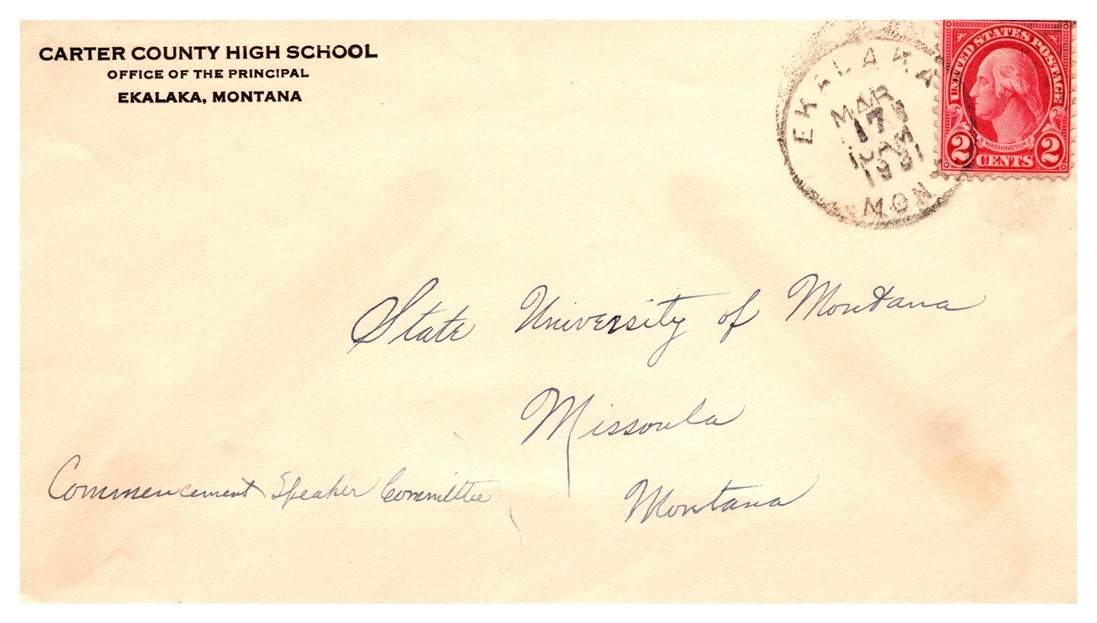 CARTER COUNTY HIGH SCHOOL
OFFICE OF THE PRINCIPAL
EKALAKA, MONTANA
EKALAKA
MAR
17
1931
MON
UNITED STATES POSTAGE
WASHINGTON
2 CENTS 2
State University of Montana
Missoula
Montana
Commencement Speaker Committee